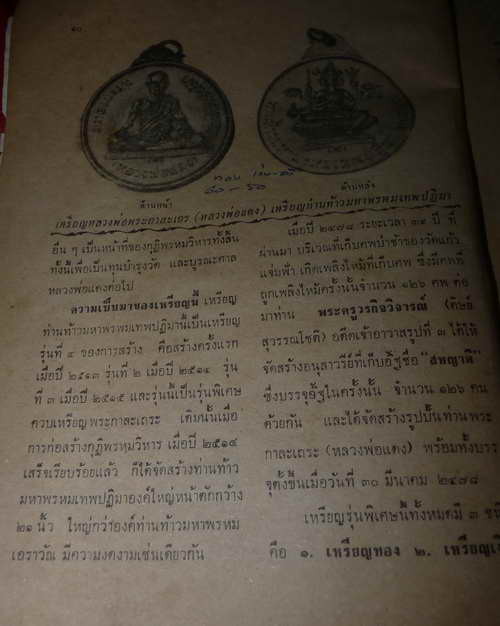 ๔๐
หลวงพ่อพระกาฬ
๕๐ - ๖๐
ด้านหน้า
ด้านหลัง
เหรียญหลวงพ่อพระกาละเถร (หลวงพ่อแดง) เหรียญท่านท้าวมหาพรหมเทพปฏิมา
อื่น ๆ เป็นหน้าที่ของกุฏิพรหมวิหารทั้งสิ้น
ทั้งนี้เพื่อเป็นทุนบำรุงวัด และบูรณะศาล
หลวงพ่อแดงต่อไป
ความเป็นมาของเหรียญนี้ เหรียญ
ท่านท้าวมหาพรหมเทพปฏิมานี้เป็นเหรียญ
รุ่นที่ ๔ ของการสร้าง คือสร้างครั้งแรก
เมื่อปี ๒๕๑๓ รุ่นที่ ๒ เมื่อปี ๒๕๑๔ รุ่น
ที่ ๓ เมื่อปี ๒๕๑๕ และรุ่นนี้เป็นรุ่นพิเศษ
ควบเหรียญพระกาละเถระ เดิมนั้นเมื่อ
การก่อสร้างกุฏิพรหมวิหาร เมื่อปี ๒๕๑๔
เสร็จเรียบร้อยแล้ว ก็ได้จัดสร้างท่านท้าว
มหาพรหมเทพปฏิมาองค์ใหญ่หน้าตักกว้าง
๒๑ นิ้ว ใหญ่กว่าองค์ท่านท้าวมหาพรหม
เอราวัณ มีความงดงามเช่นเดียวกัน
เมื่อปี ๒๔๗๘ ระยะเวลา ๓๙ ปี ที่
ผ่านมา บริเวณที่เก็บศพป่าช้าของวัดแก้ว
แจ่มฟ้า เกิดเพลิงไหม้ที่เก็บศพ ซึ่งมีศพที่
ถูกเพลิงไหม้ครั้งนั้นจำนวน ๑๒๖ ศพ ต่อ
มาท่าน พระครูวรกิจวิจารณ์ (ดิษย์
สุวรรณโชติ) อดีตเจ้าอาวาสรูปที่ ๓ ได้ให้
จัดสร้างอนุสาวรีย์ที่เก็บอัฐิชื่อ "สหญาติ"
ซึ่งบรรจุอัฐิในครั้งนั้น จำนวน ๑๒๖ คน
ด้วยกัน และได้จัดสร้างรูปปั้นท่านพระ
กาละเถระ (หลวงพ่อแดง) พร้อมทั้งบรร
จุตั้งขึ้นเมื่อวันที่ ๓๐ มีนาคม ๒๔๗๘
เหรียญรุ่นพิเศษนี้ทั้งหมดมี ๓ ชนิ
คือ ๑. เหรียญทอง ๒. เหรียญเ